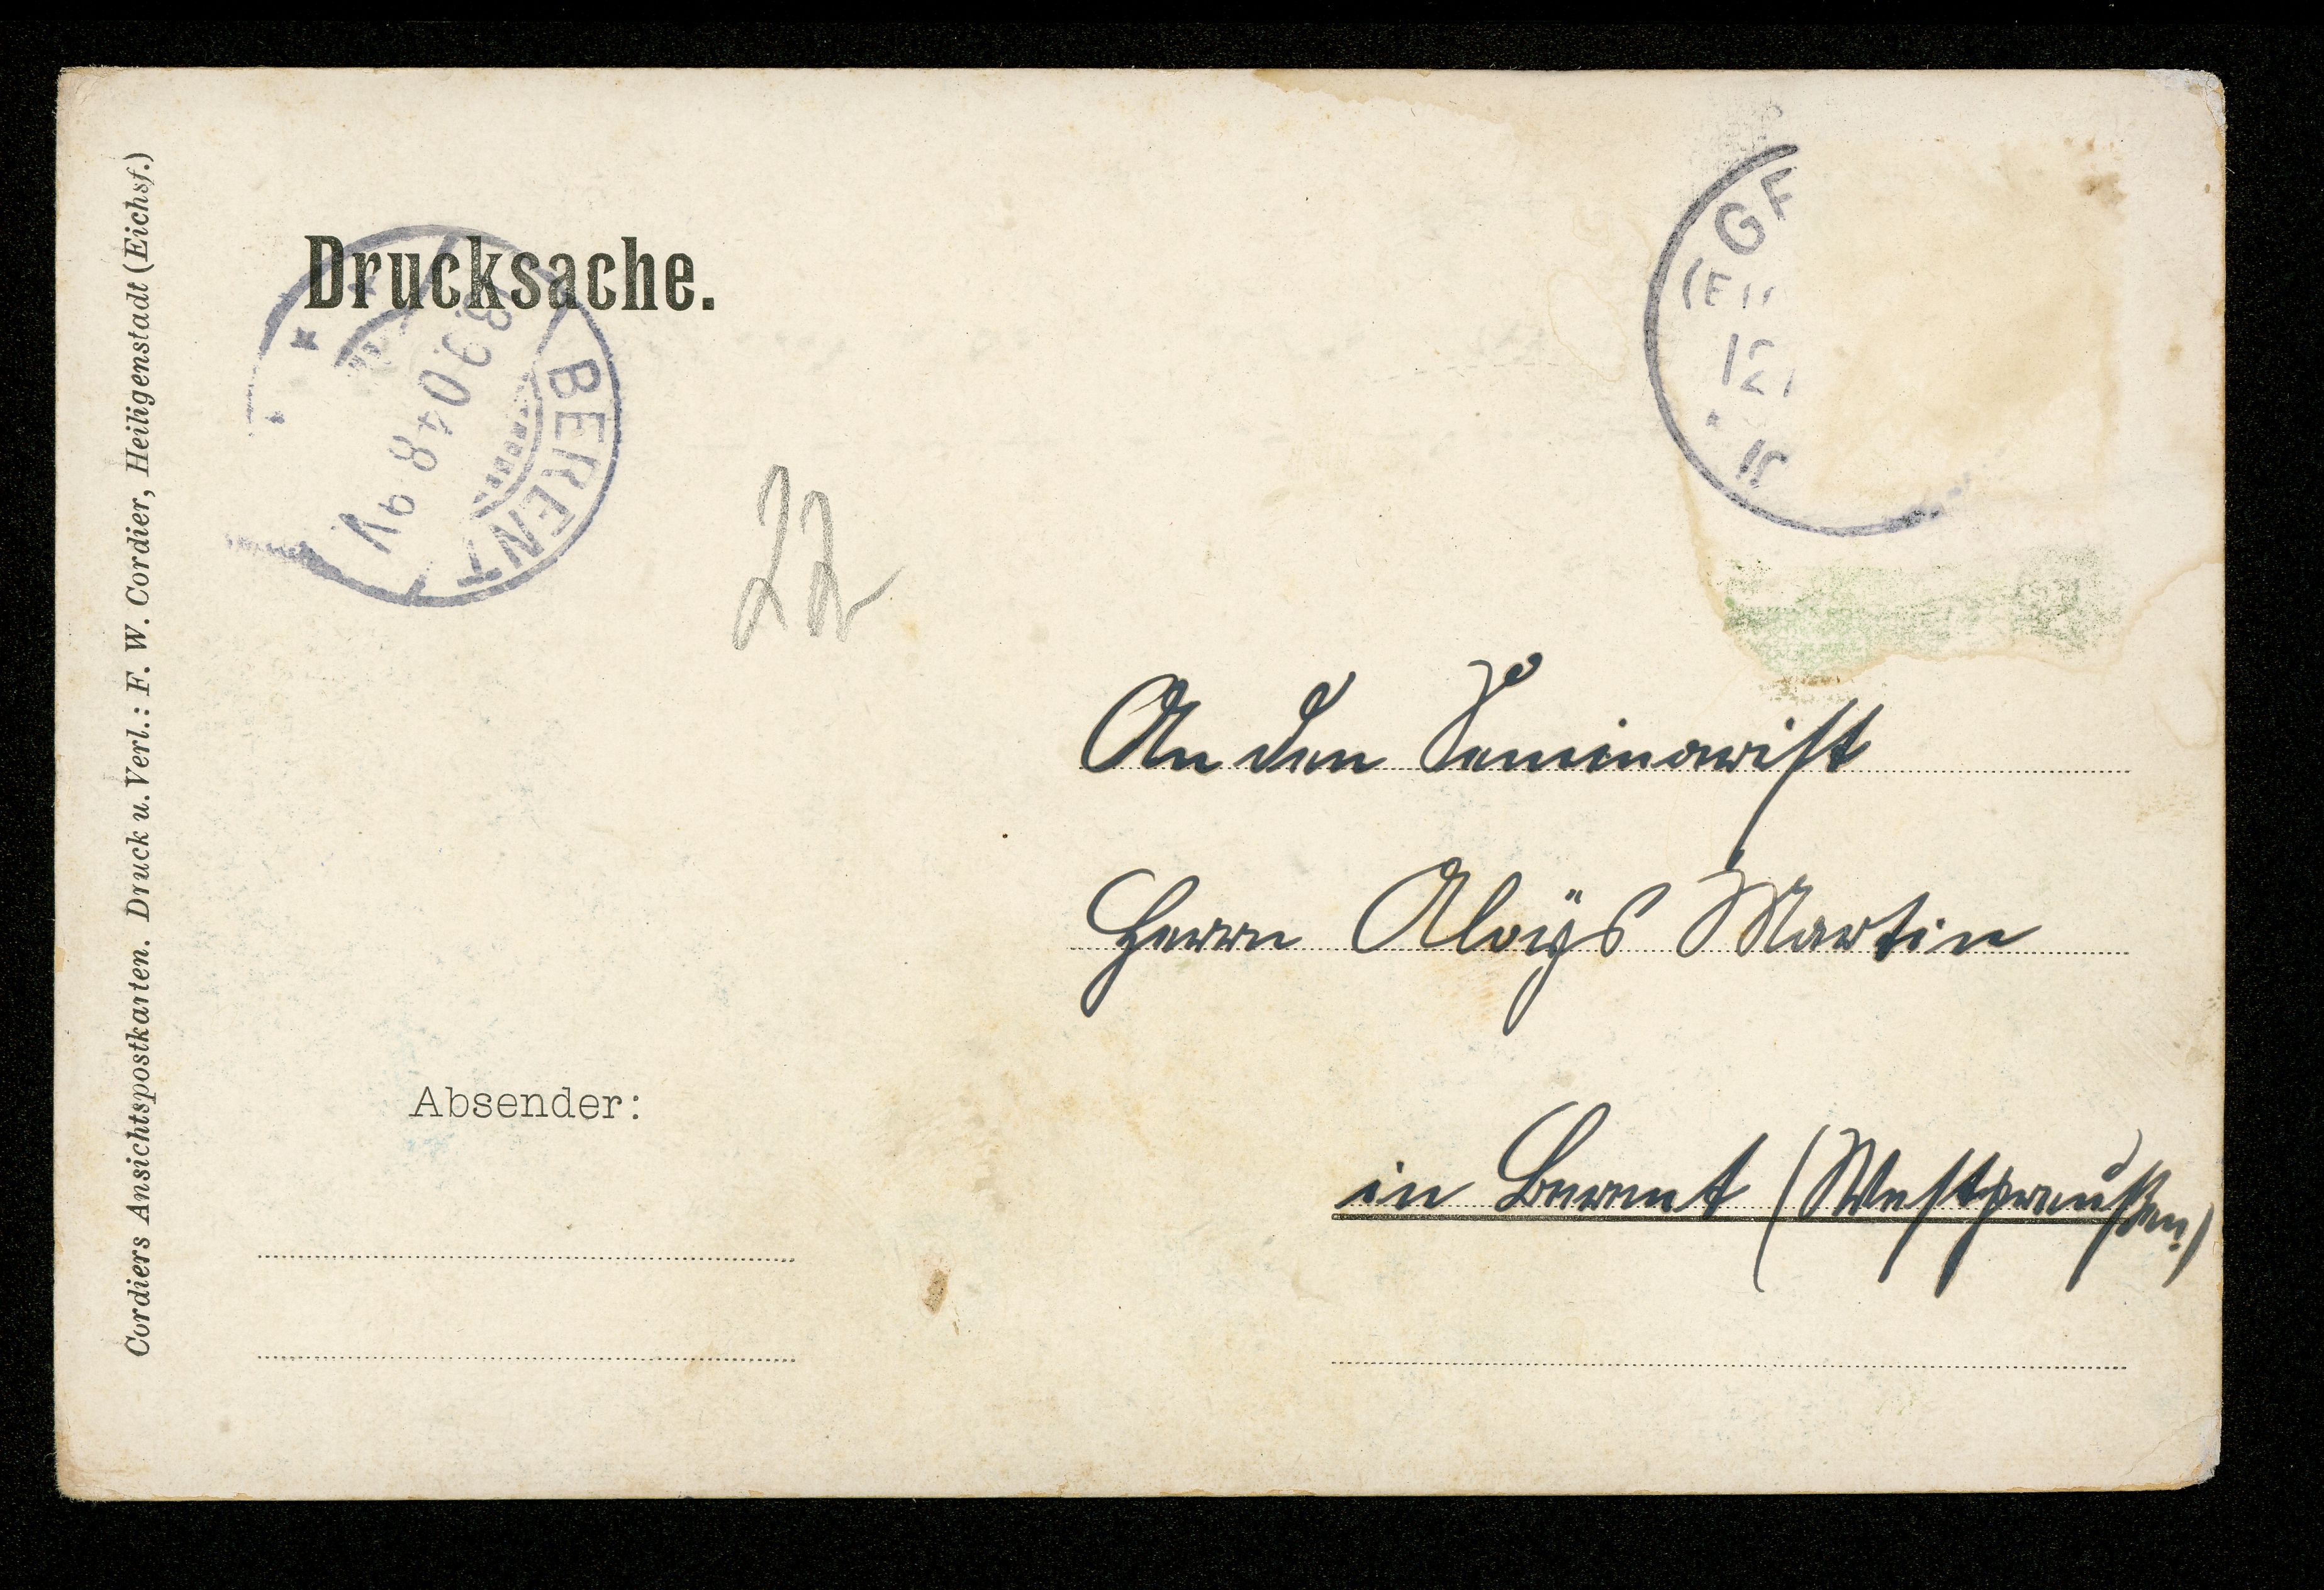 Drucksache.
BERENT
8.9.04 8-9V
GF
22
An den Seminarist
Herrn Aloÿs Martin
in Berent (Westpreußen)
Absender:
Cordiers Ansichtspostkarten. Druck u. Verl.: F. W. Cordier, Heiligenstadt (Eichsf.)